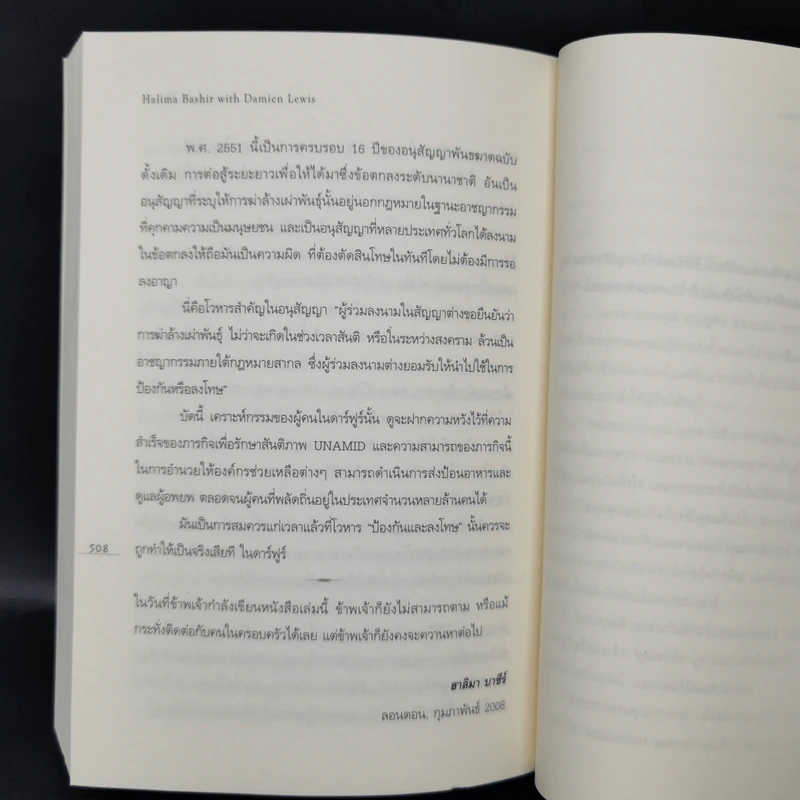 Halima Bashir with Damien Lewis
พ.ศ. 2551 นี้เป็นการครบรอบ 16 ปีของอนุสัญญาพันธฆาตฉบับ
ดั้งเดิม การต่อสู้ระยะยาวเพื่อให้ได้มาซึ่งข้อตกลงระดับนานาชาติ อันเป็น
อนุสัญญาที่ระบุให้การฆ่าล้างเผ่าพันธุ์นั้นอยู่นอกกฎหมายในฐานะอาชญากรรม
ที่คุกคามความเป็นมนุษยชน และเป็นอนุสัญญาที่หลายประเทศทั่วโลกได้ลงนาม
ในข้อตกลงให้ถือมันเป็นความผิด ที่ต้องตัดสินโทษในทันทีโดยไม่ต้องมีการรอ
ลงอาญา
นี่คือโวหารสำคัญในอนุสัญญา "ผู้ร่วมลงนามในสัญญาต่างขอยืนยันว่า
การฆ่าล้างเผ่าพันธุ์ ไม่ว่าจะเกิดในช่วงเวลาสันติ หรือในระหว่างสงคราม ล้วนเป็น
อาชญากรรมภายใต้กฎหมายสากล ซึ่งผู้ร่วมลงนามต่างยอมรับให้นำไปใช้ในการ
ป้องกันหรือลงโทษ"
บัดนี้ เคราะห์กรรมของผู้คนในดาร์ฟูร์นั้น ดูจะฝากความหวังไว้ที่ความ
สำเร็จของภารกิจเพื่อรักษาสันติภาพ UNAMID และความสามารถของภารกิจนี้
ในการอำนวยให้องค์กรช่วยเหลือต่างๆ สามารถดำเนินการส่งป้อนอาหารและ
ดูแลผู้อพยพ ตลอดจนผู้คนที่พลัดถิ่นอยู่ในประเทศจำนวนหลายล้านคนได้
มันเป็นการสมควรแก่เวลาแล้วที่โวหาร "ป้องกันและลงโทษ" นั้นควรจะ
508
ถูกทำให้เป็นจริงเสียที ในดาร์ฟูร์
ในวันที่ข้าพเจ้ากำลังเขียนหนังสือเล่มนี้ ข้าพเจ้าก็ยังไม่สามารถตาม หรือแม้
กระทั่งติดต่อกับคนในครอบครัวได้เลย แต่ข้าพเจ้าก็ยังคงจะควานหาต่อไป
ฮาลิมา บาชีร์
ลอนดอน, กุมภาพันธ์ 2008